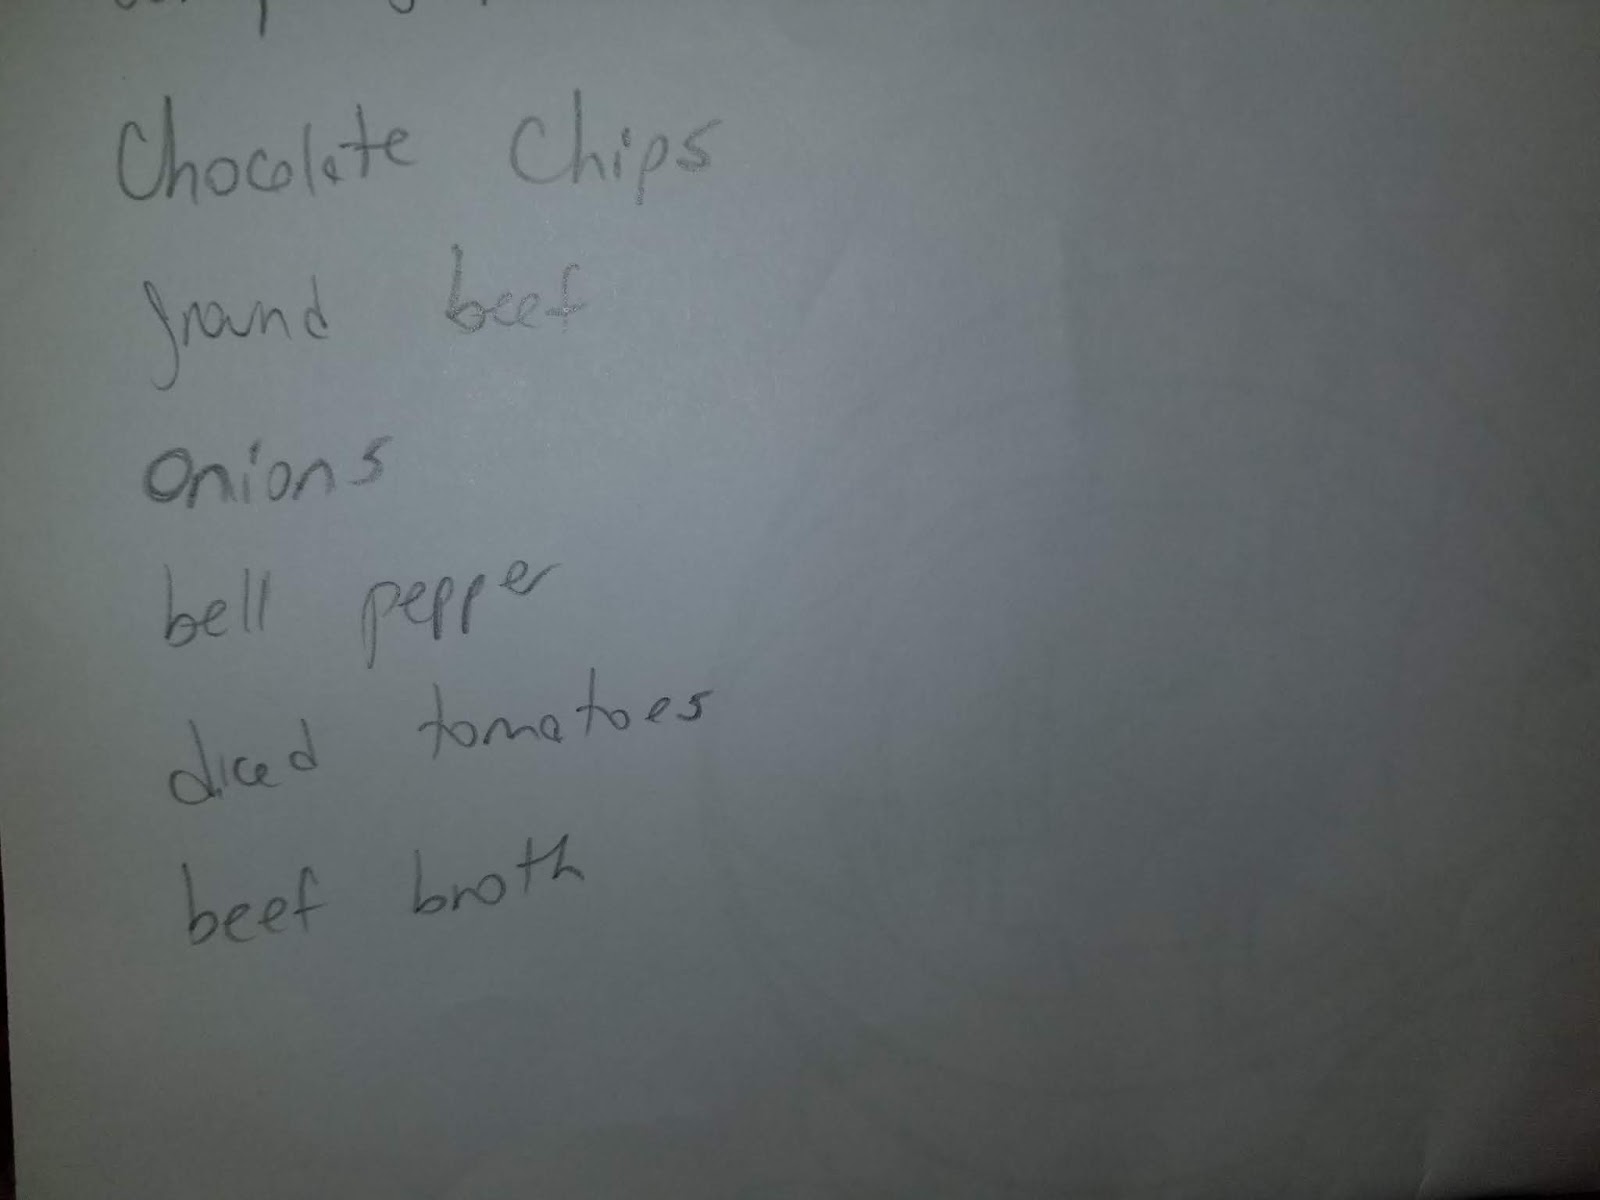 Chocolate Chips
ground beef
onions
bell pepper
diced tomatoes
beef broth